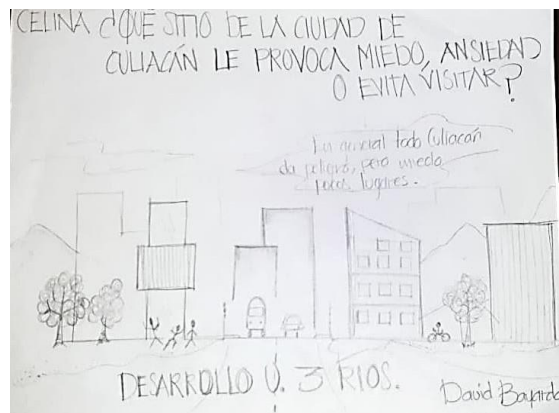 CELINA ¿QUÉ SITIO DE LA CIUDAD DE
CULIACÁN LE PROVOCA MIEDO, ANSIEDAD
O EVITA VISITAR?
En general todo Culiacán
da peligro, pero miedo
pocos lugares.
DESARROLLO U. 3 RIOS.
David Bayardo